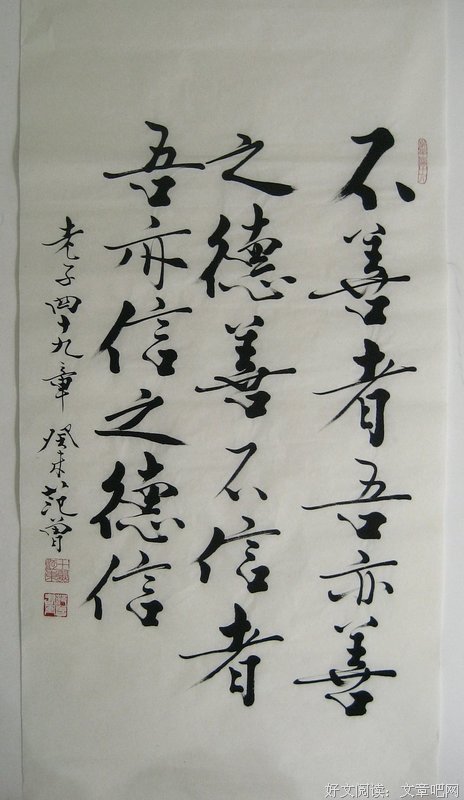 不善者吾亦善
之德善不信者
吾亦信之德信
老子四十九章 癸未 范曾
好文阅读：文章吧网